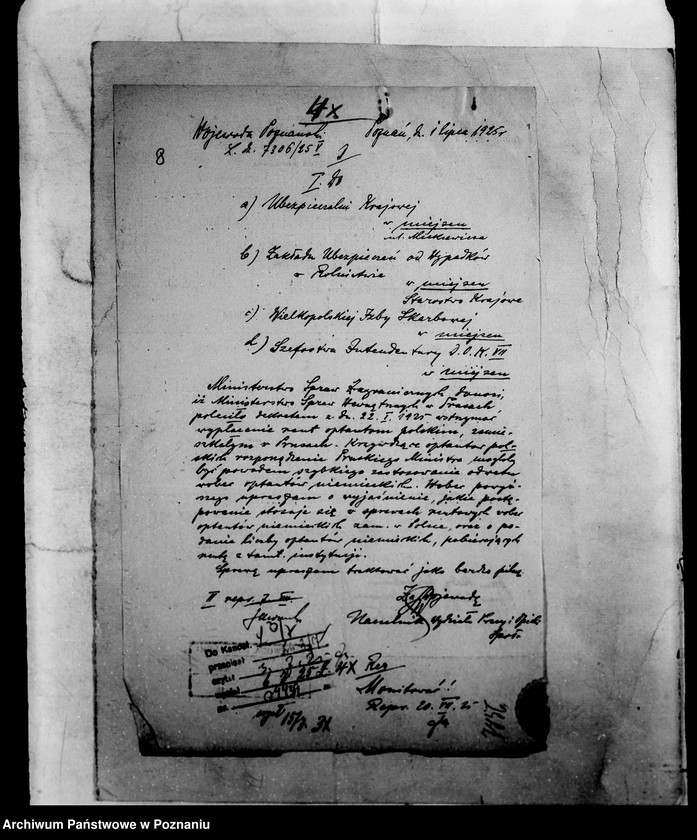 4x
Wojewoda Poznański. Poznań, d. 1 lipca 1925 r
L. dz. 7306/25 V
8
I. Do
a) Ubezpieczalni Krajowej
w miejscu
ul. Mickiewicza
b) Zakładu Ubezpieczeń od Wypadków
w Rolnictwie
w miejscu
Starostwo Krajowe
c) Wielkopolskiej Izby Skarbowej
w miejscu
d) Szefostwa Intendentury D.O.K. VII
w miejscu
Ministerstwo Spraw Zagranicznych donosi,
iż Ministerstwo Spraw Wewnętrznych w Prusach
poleciło dekretem z dn. 22. I. 1925 wstrzymać
wypłacenie rent optantom polskim, zamie-
szkałym w Prusach. Krzywdzące optantów pol-
skich rozporządzenie Pruskiego Ministra mogłoby
być powodem szybkiego zastosowania odwetu
wobec optantów niemieckich. Wobec powyż-
szego upraszam o wyjaśnienie, jakie postę-
powanie stosuje się w sprawach rentowych wobec
optantów niemieckich zam. w Polsce, oraz o po-
danie liczby optantów niemieckich, pobierających
rentę z tamt. instytucji.
Sprawę upraszam traktować jako bardzo pilną
II repr. 7. VII.
Za Wojewodę
Naczelnik Wydziału Pracy i Opieki
Społ.
Do Kancel.
przepisał
czytał
wysłał
4x Reg
Monitować!
Repr. 20. VII. 25
Archiwum Państwowe w Poznaniu